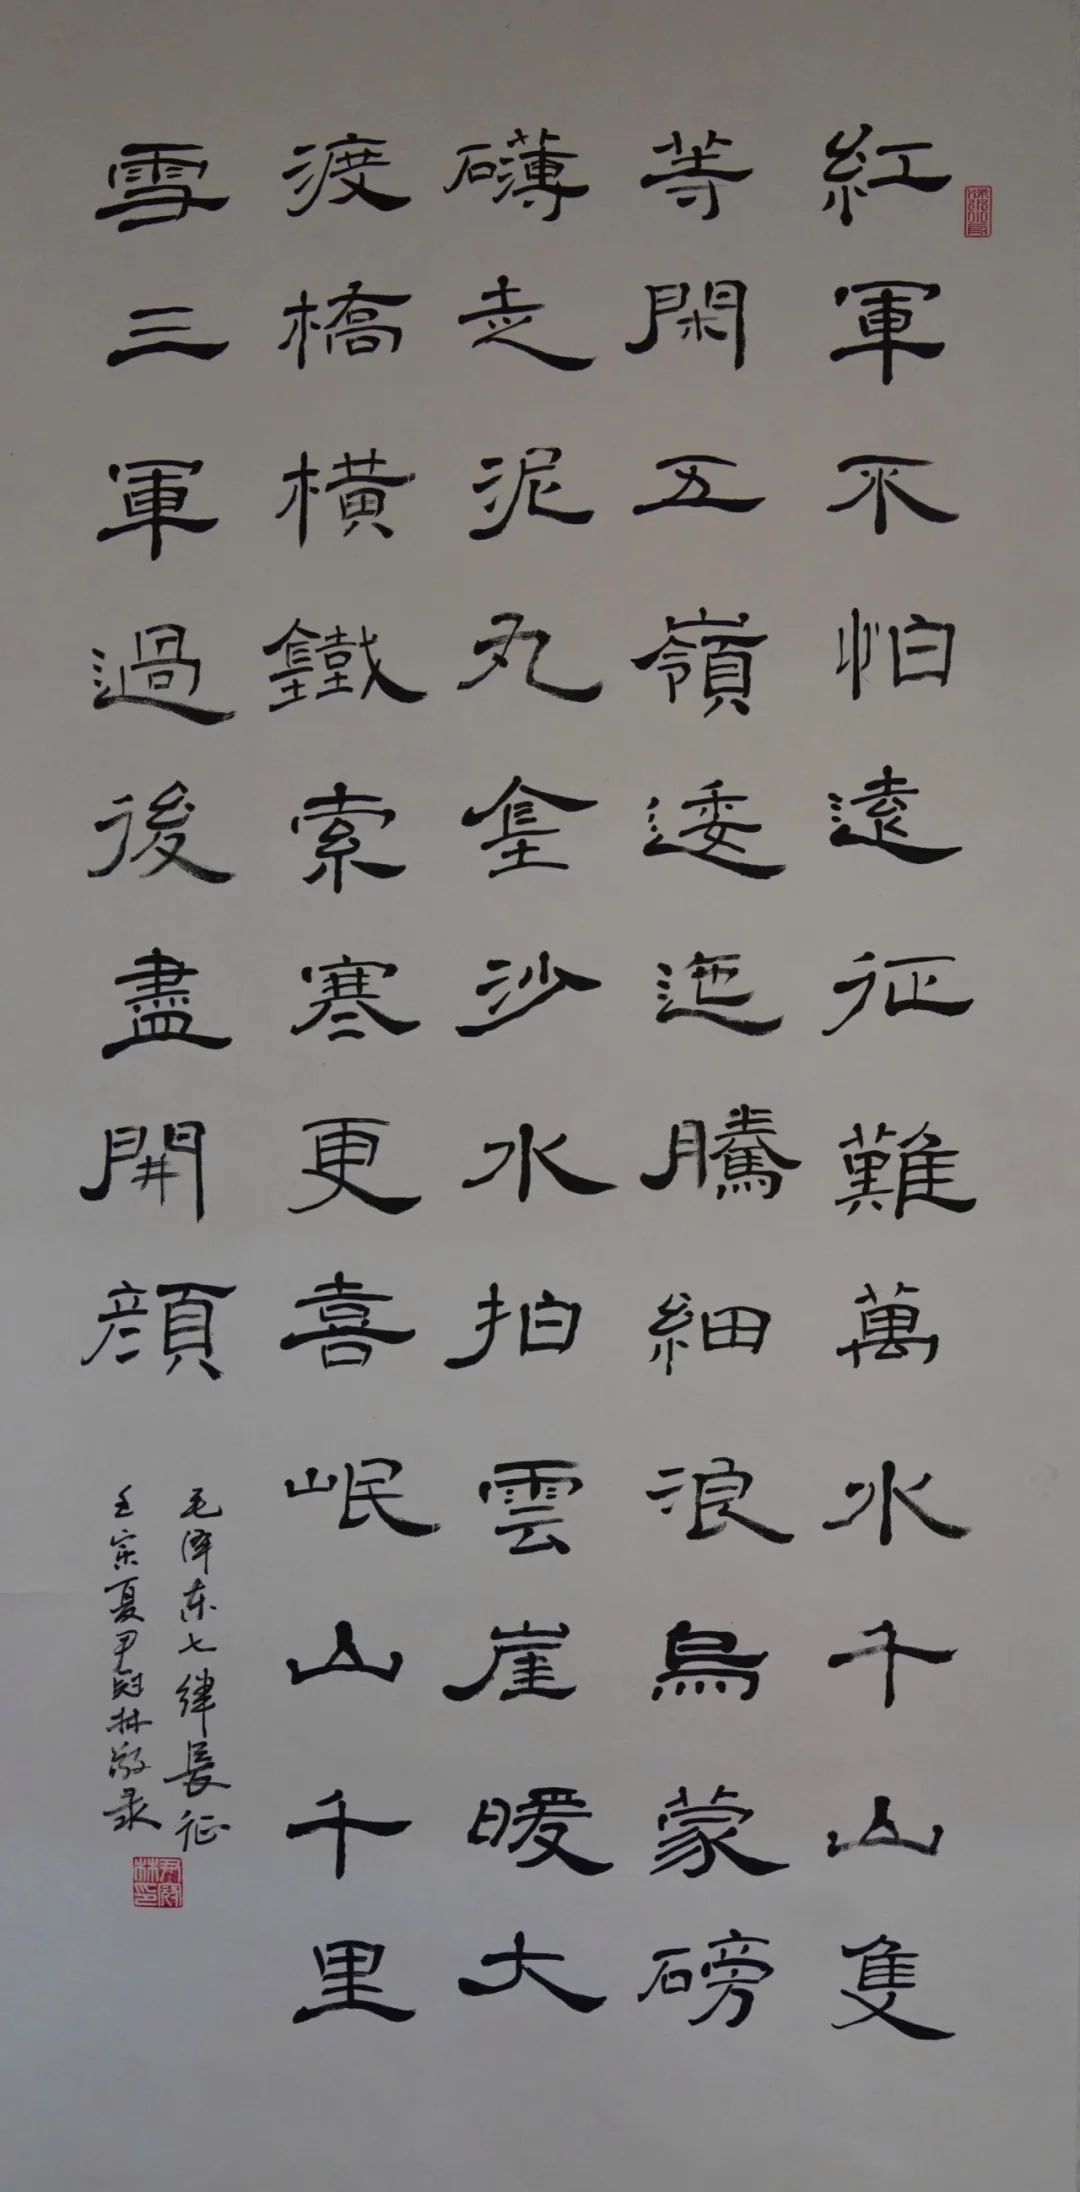 紅軍不怕遠征難萬水千山隻
等閑五嶺逶迤騰細浪烏蒙磅
礴走泥丸金沙水拍雲崖暖大
渡橋橫鐵索寒更喜岷山千里
雪三軍過後盡開顏
毛泽东七律長征
壬寅夏尹冠林敬录
尹冠林印